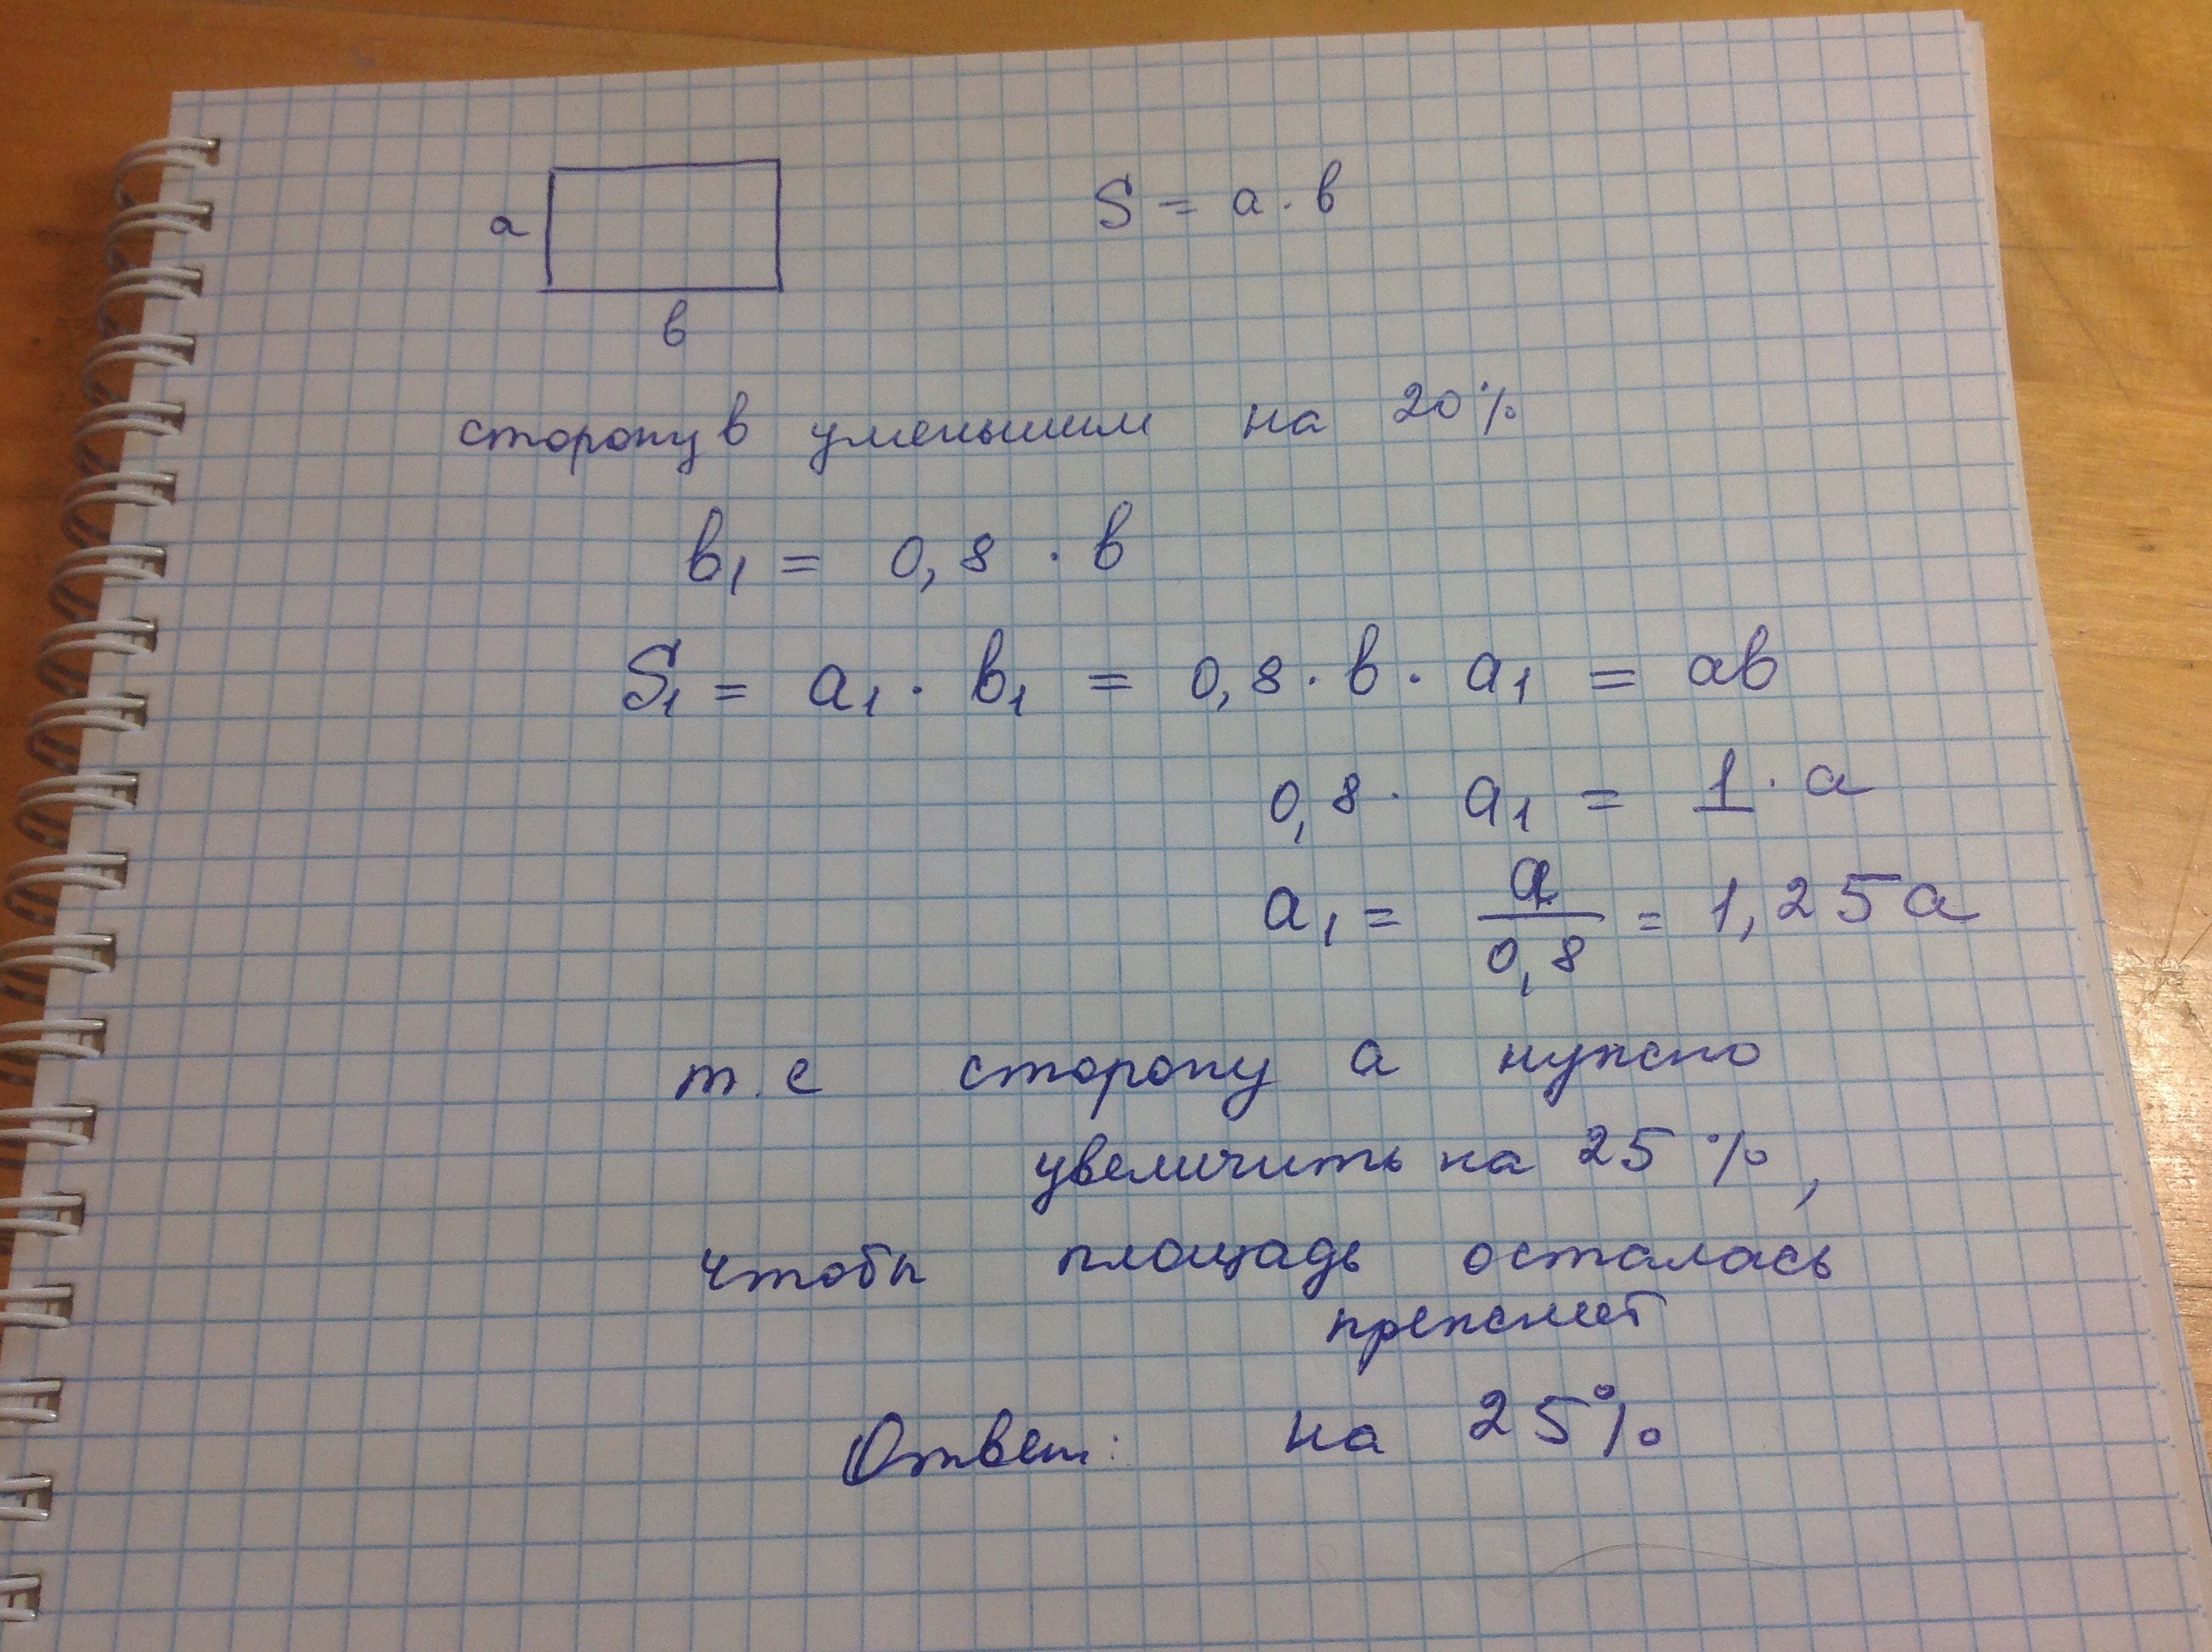 a
S = a · в
в
сторону в уменьшим на 20%
в₁ = 0,8 · в
S₁ = a₁ · в₁ = 0,8 · в · a₁ = aв
0,8 · a₁ = 1 · a
a₁ = a/0,8 = 1,25a
т.е сторону а нужно
увеличить на 25%,
чтобы площадь осталась
прежней
Ответ: на 25%